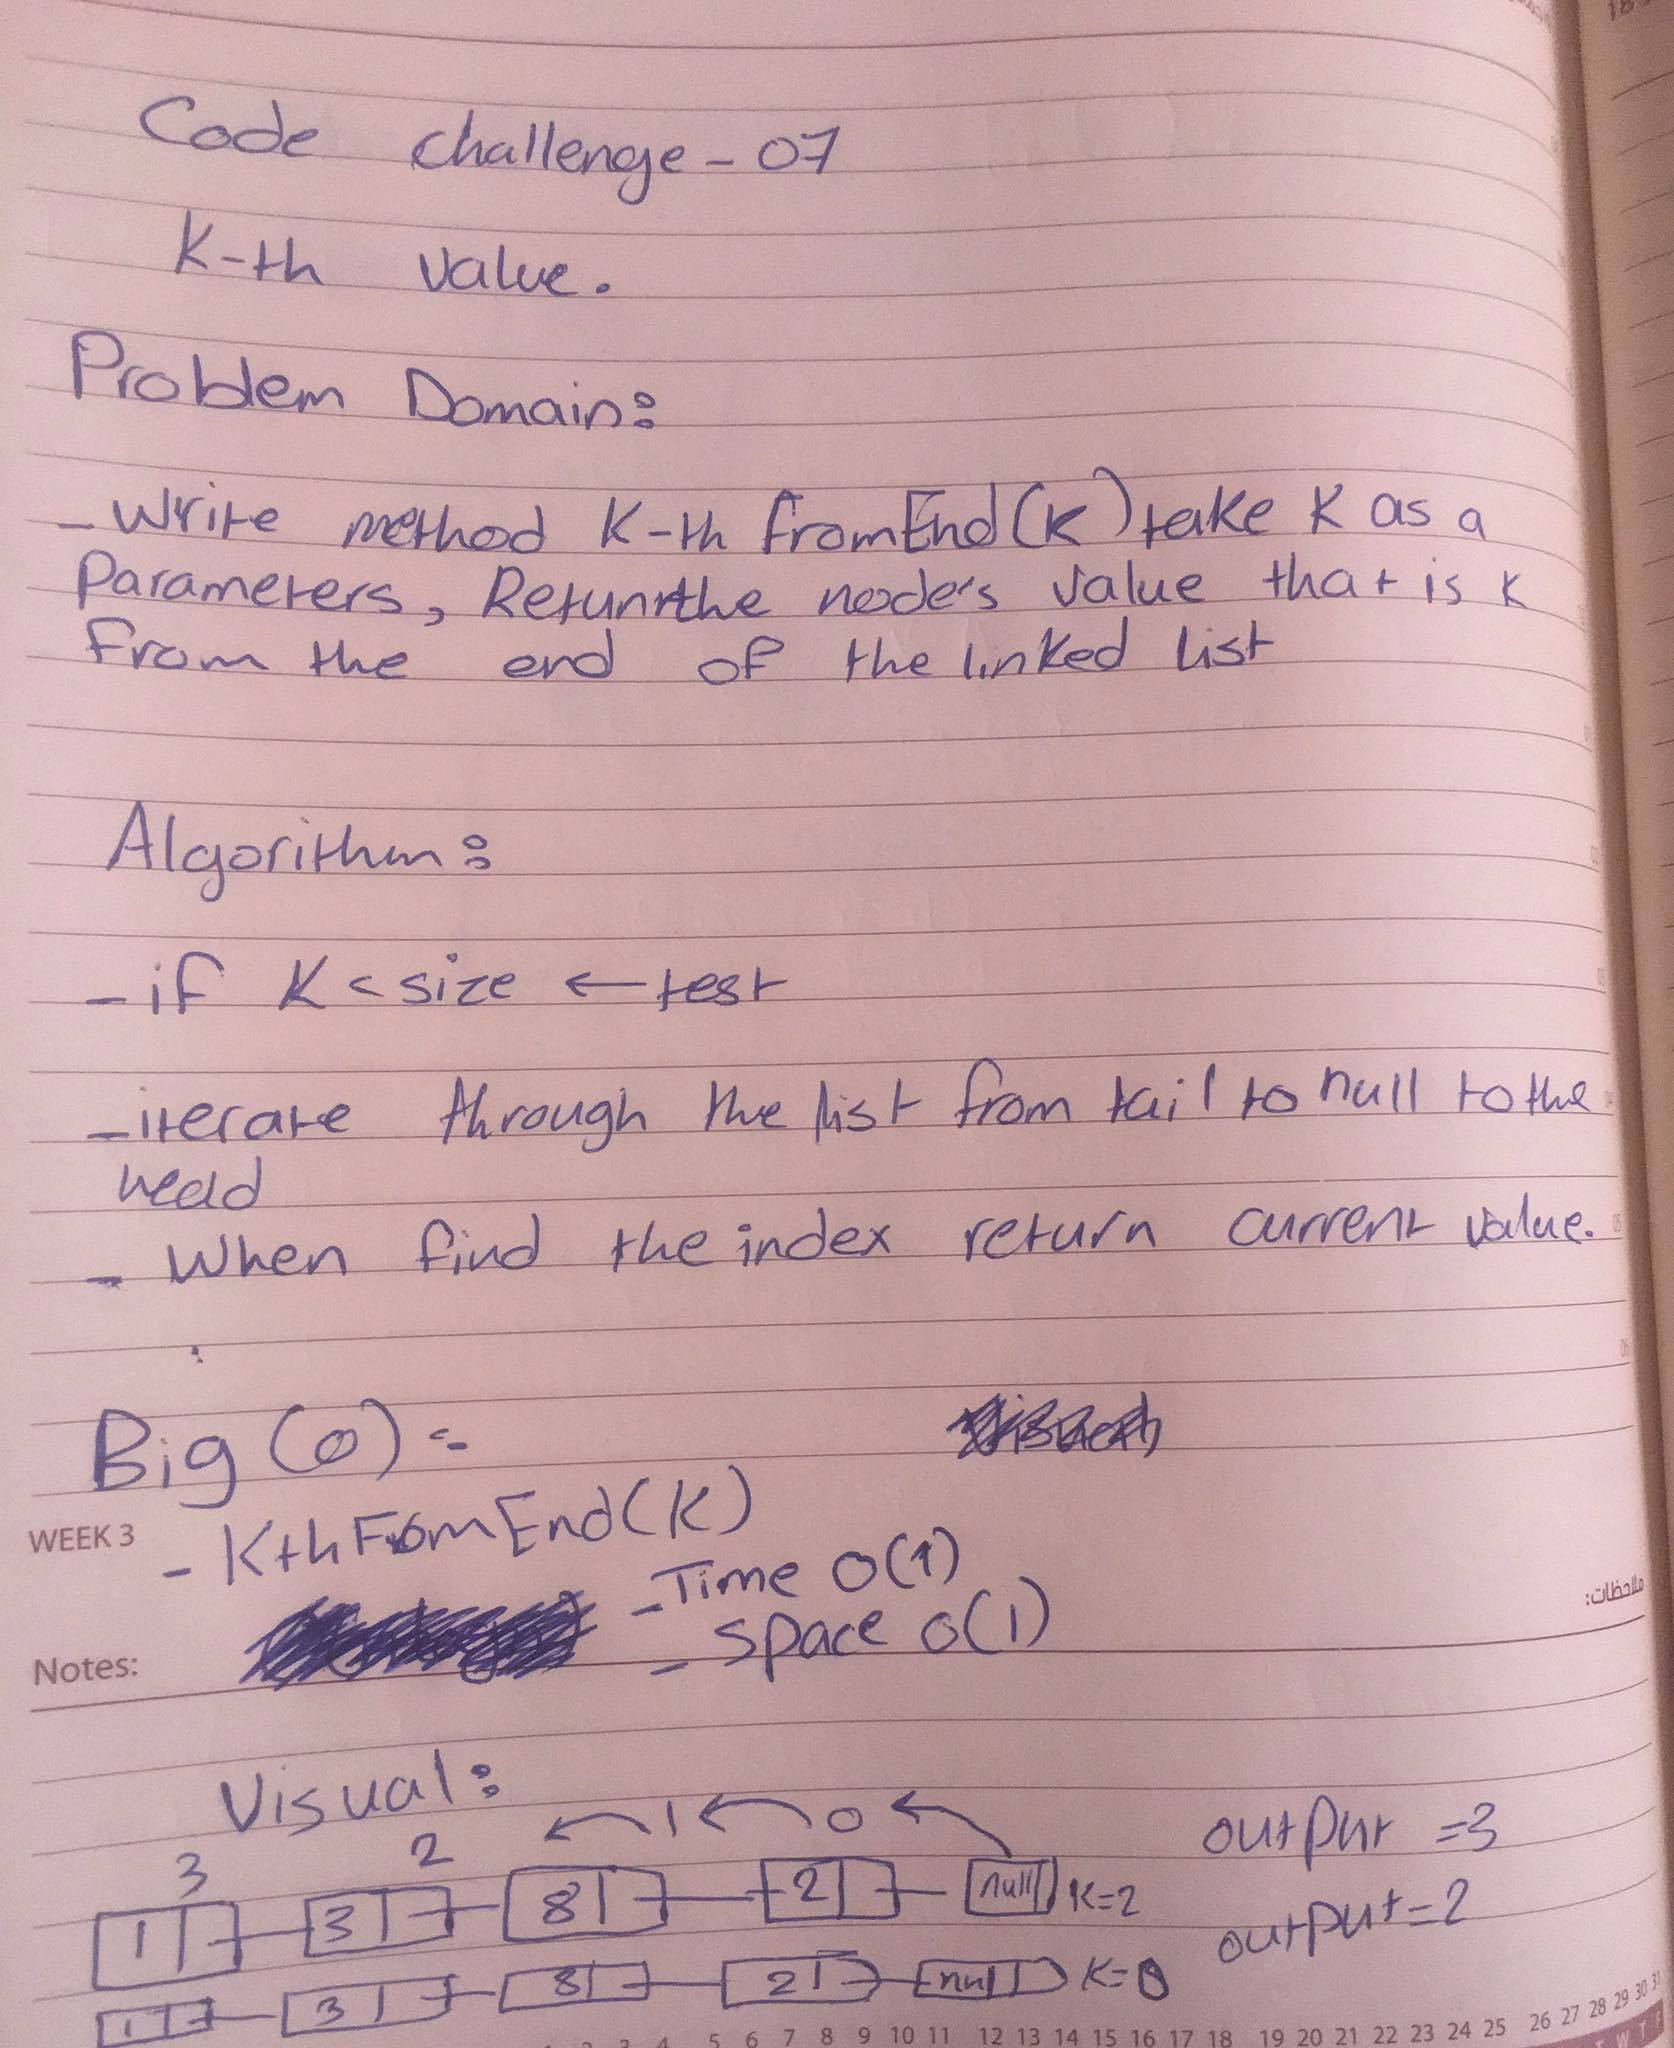 Code challenge - 07
K-th value.
Problem Domain:
- Write method K-th fromEnd(K) take K as a
Parameters, Retunrthe node's value that is K
from the end of the linked list
Algorithm:
- if K < size ← test
- iterate through the list from tail to null to the
head
- When find the index return current value.
Big (O) :-
WEEK 3
- KthFromEnd(K)
- Time O(1)
- space O(1)
ملاحظات:
Notes:
Visual:
3 2 1 0
1 3 8 2 null K=2 output =3
1 3 8 2 null K=0 output=2
4 5 6 7 8 9 10 11 12 13 14 15 16 17 18 19 20 21 22 23 24 25 26 27 28 29 30 31
T W T F